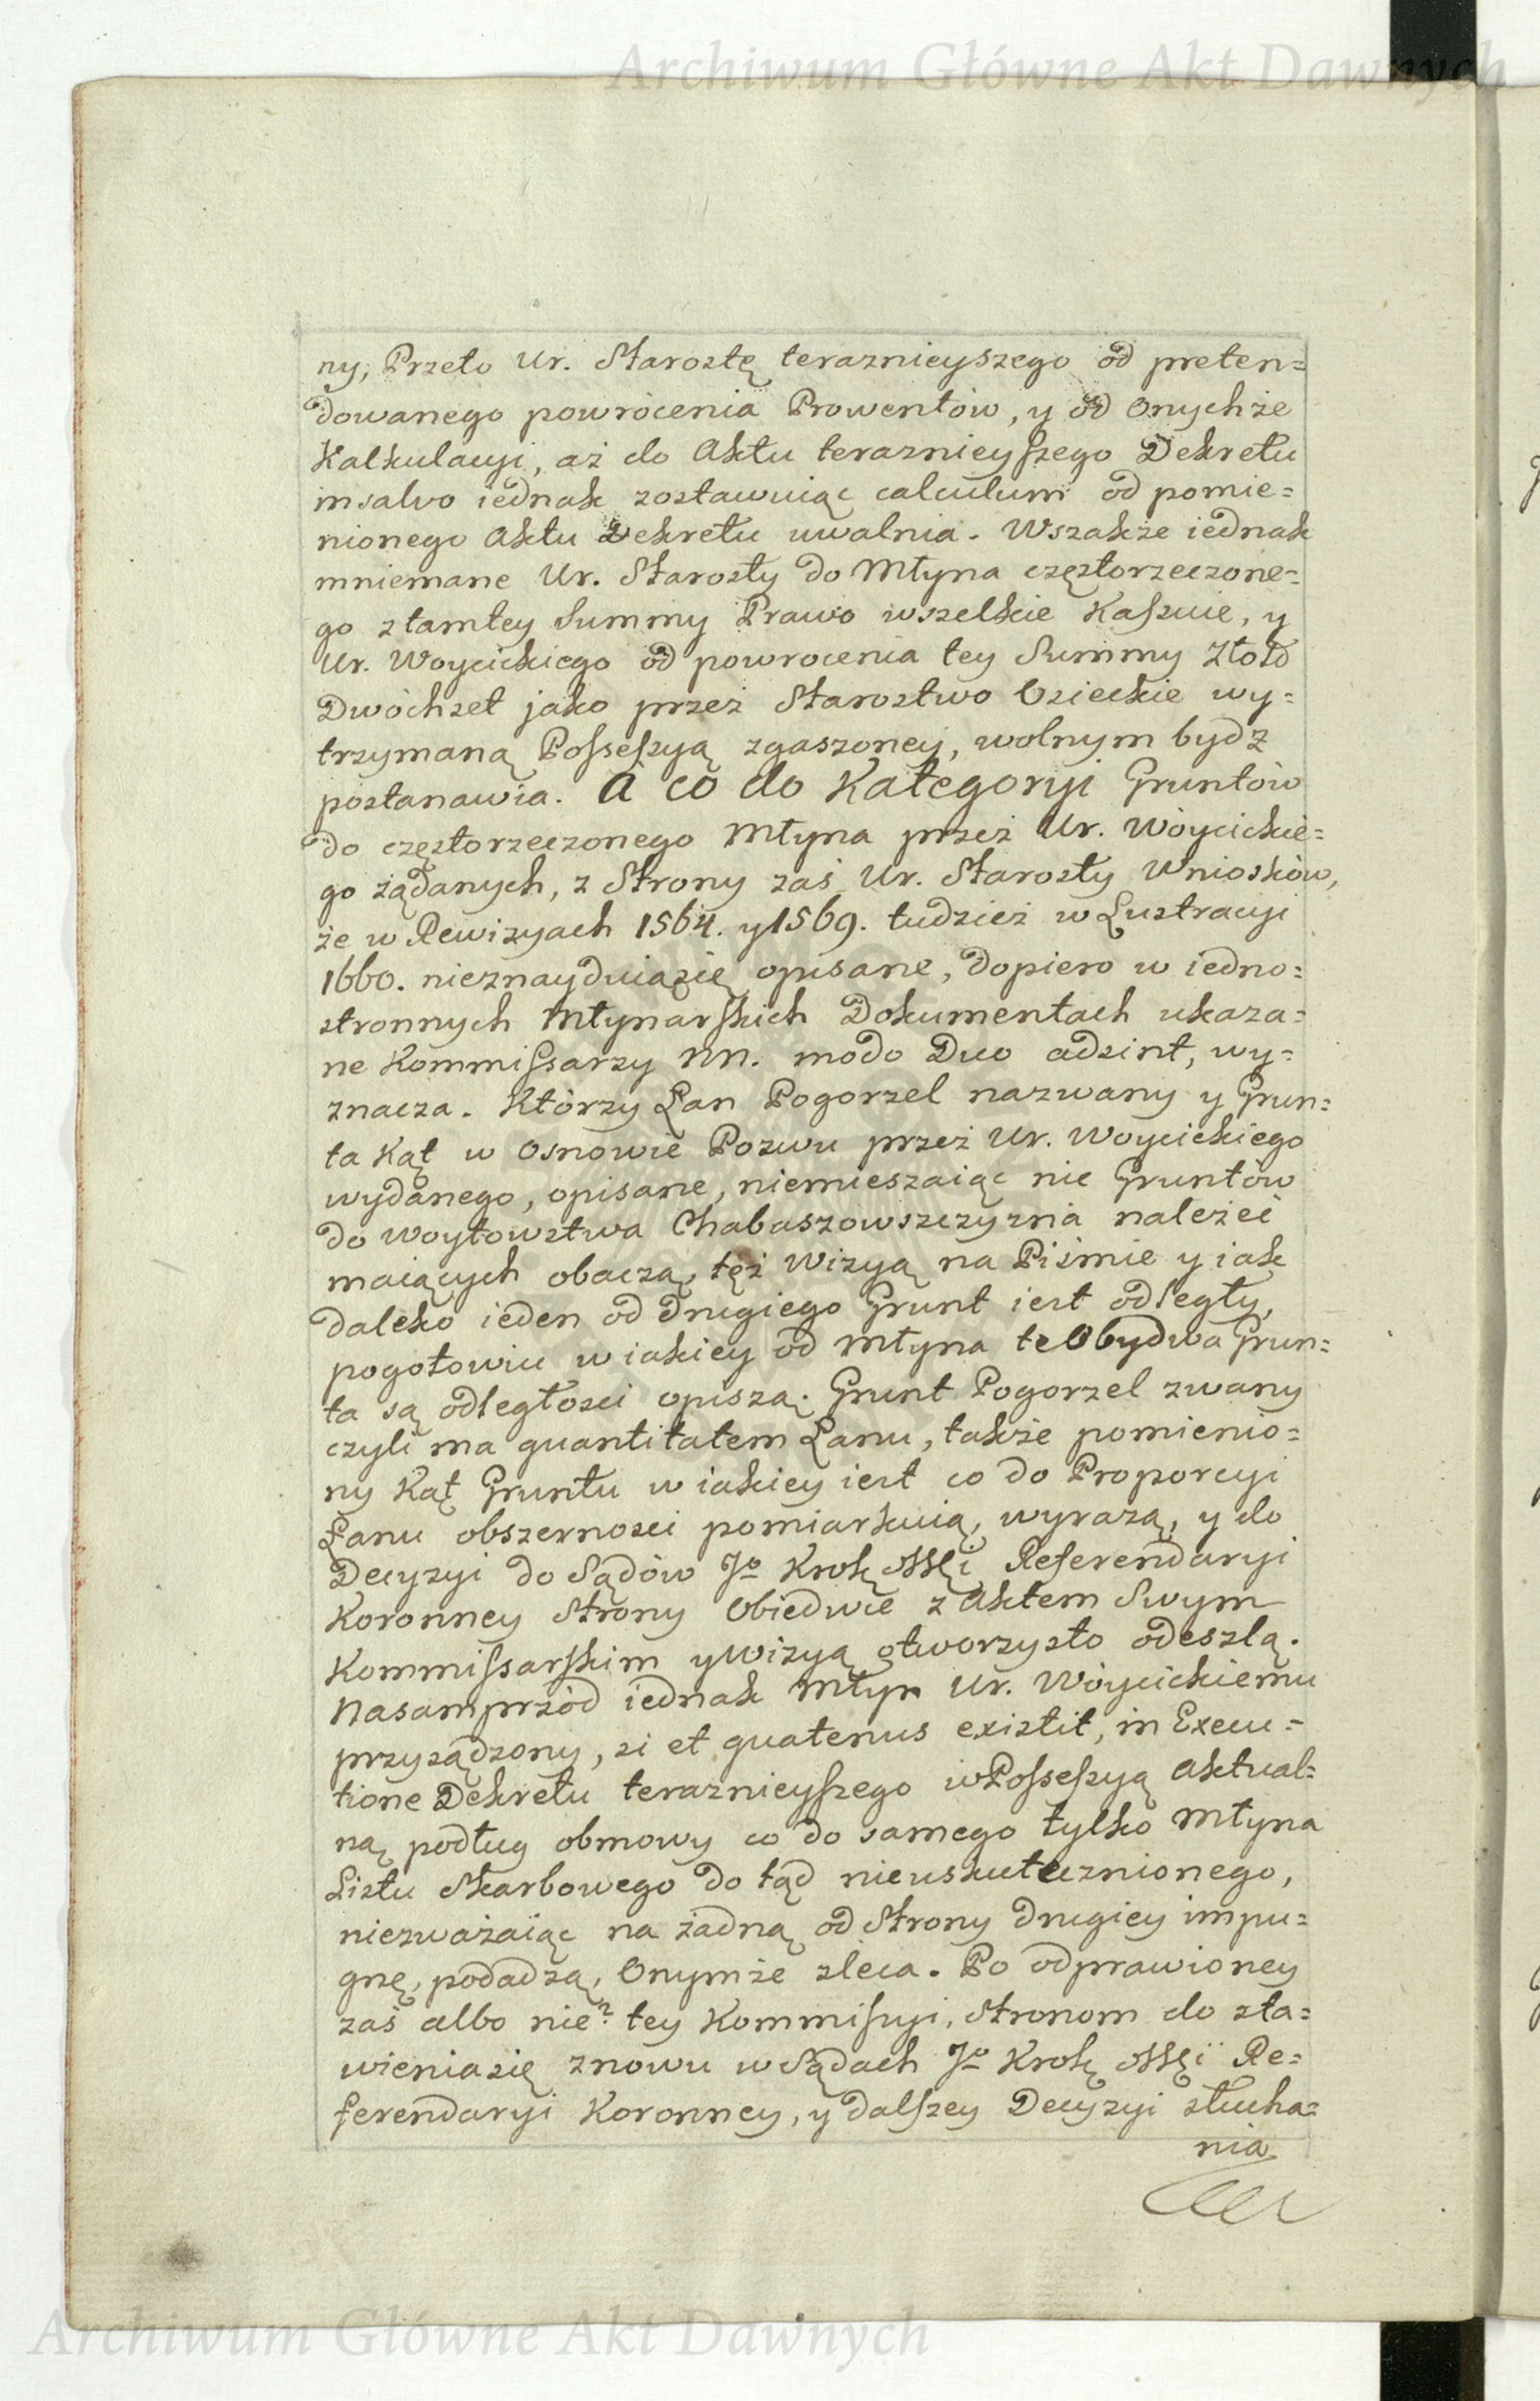 Archiwum Główne Akt Dawnych
ny, Przeto Ur. Starostę teraznieyszego od preten=
dowanego powrócenia Prowentów, y od Onychże
Kalkulacyi, aż do Aktu teraznieyszego Dekretu
in salvo iednak zostawuiąc calculum od pomie=
nionego Aktu Dekretu uwalnia. Wszakże iednak
mniemane Ur. Starosty do Młyna częstorzeczone=
go z tamtey Summy Prawo wszelkie Kassuie, y
Ur. Woycickiego od powrocenia tey Summy Złotd
Dwóchset jako przez Starostwo Osieckie wy=
trzymaną Possessyą zgaszoney, wolnym bydź
postanawia. A co do Kategoryi Gruntów
do częstorzeczonego Młyna przez Ur. Wóycickie=
go żądanych, z Strony zaś Ur. Starosty Wniosków,
że w Rewizyach 1564. y 1569. tudzież w Lustracyi
1660. nieznayduiąsię opisane, dopiero w iedno=
stronnych Młynarskich Dokumentach ukaza=
ne Kommissarzy NN. modo Duo adsint, wy=
znacza. Którzy Łan Pogorzel nazwany y Grun=
ta Kąt w Osnowie Pozwu przez Ur. Woycickiego
wydanego, opisane, niemieszaiąc nic Gruntów
do Woytowstwa Chabaszowszczyzna należeć
maiących obaczą, tęż Wizyą na Piśmie y iak
daleko ieden od drugiego Grunt iest odległy,
pogotowiu w iakiey od Młyna te Obydwa Grun=
ta są odległości opiszą. Grunt Pogorzel zwany
czyli ma quantitatem Łanu, także pomienio=
ny Kąt Gruntu w iakiey iest co do Proporcyi
Łanu obszerności pomiarkuią, wyrażą, y do
Decyzyi do Sądów Jo Krok Mści Referendaryi
Koronney Strony Obiedwie z Aktem Swym
Kommissarskim y Wizyą otworzysto odeszlą.
Nasamprzód iednak Młyn Ur. Wóycickiemu
przysądzony, si et quatenus existit, in Execu=
tione Dekretu teraznieyszego w Possessyą Aktual=
ną podług obmowy co do samego tylko Młyna
Listu Skarbowego do tąd nieuskutecznionego,
niezważaiąc na żadną od Strony drugiey impu=
gnę, podadzą, Onymże zleca. Po odprawioney
zaś albo nie tey Kommissyi, Stronom do sta=
wieniasię znowu w Sądach Jo Krok Mści Re=
ferendaryi Koronney, y dalszey Decyzyi słucha=
nia
Archiwum Główne Akt Dawnych